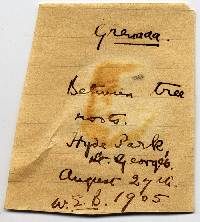 Grenada.
Between tree
roots.
Hyde Park
St. George's.
August 27th.
W.E.B. 1905